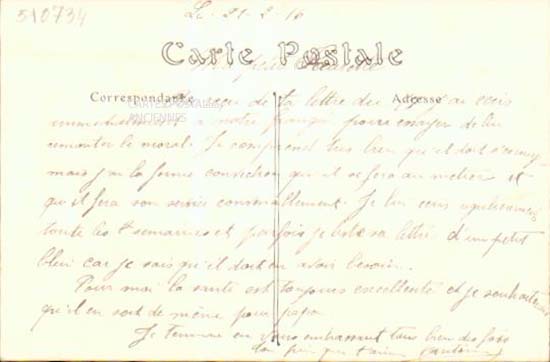 510734
Le 21-2-16
Carte Postale
Correspondance
Adresse
CARTES POSTALES
ANCIENNES
reçu de ta lettre du
immédiatement à notre pour essayer de lui
remonter le moral. Je comprend très bien qu'il doit
mais j'ai la ferme conviction qu'il se fera au métier et
qu'il fera son service convenablement. Je lui écris régulièrement
toute les semaines et parfois je sa lettre d'un petit
bleu car je sais qu'il doit en avoir besoin.
Pour moi la santé est toujours excellente et je souhaite
qu'il en soit de même pour papa.
Je termine en vous embrassant tous bien des fois
ton qui t'aime